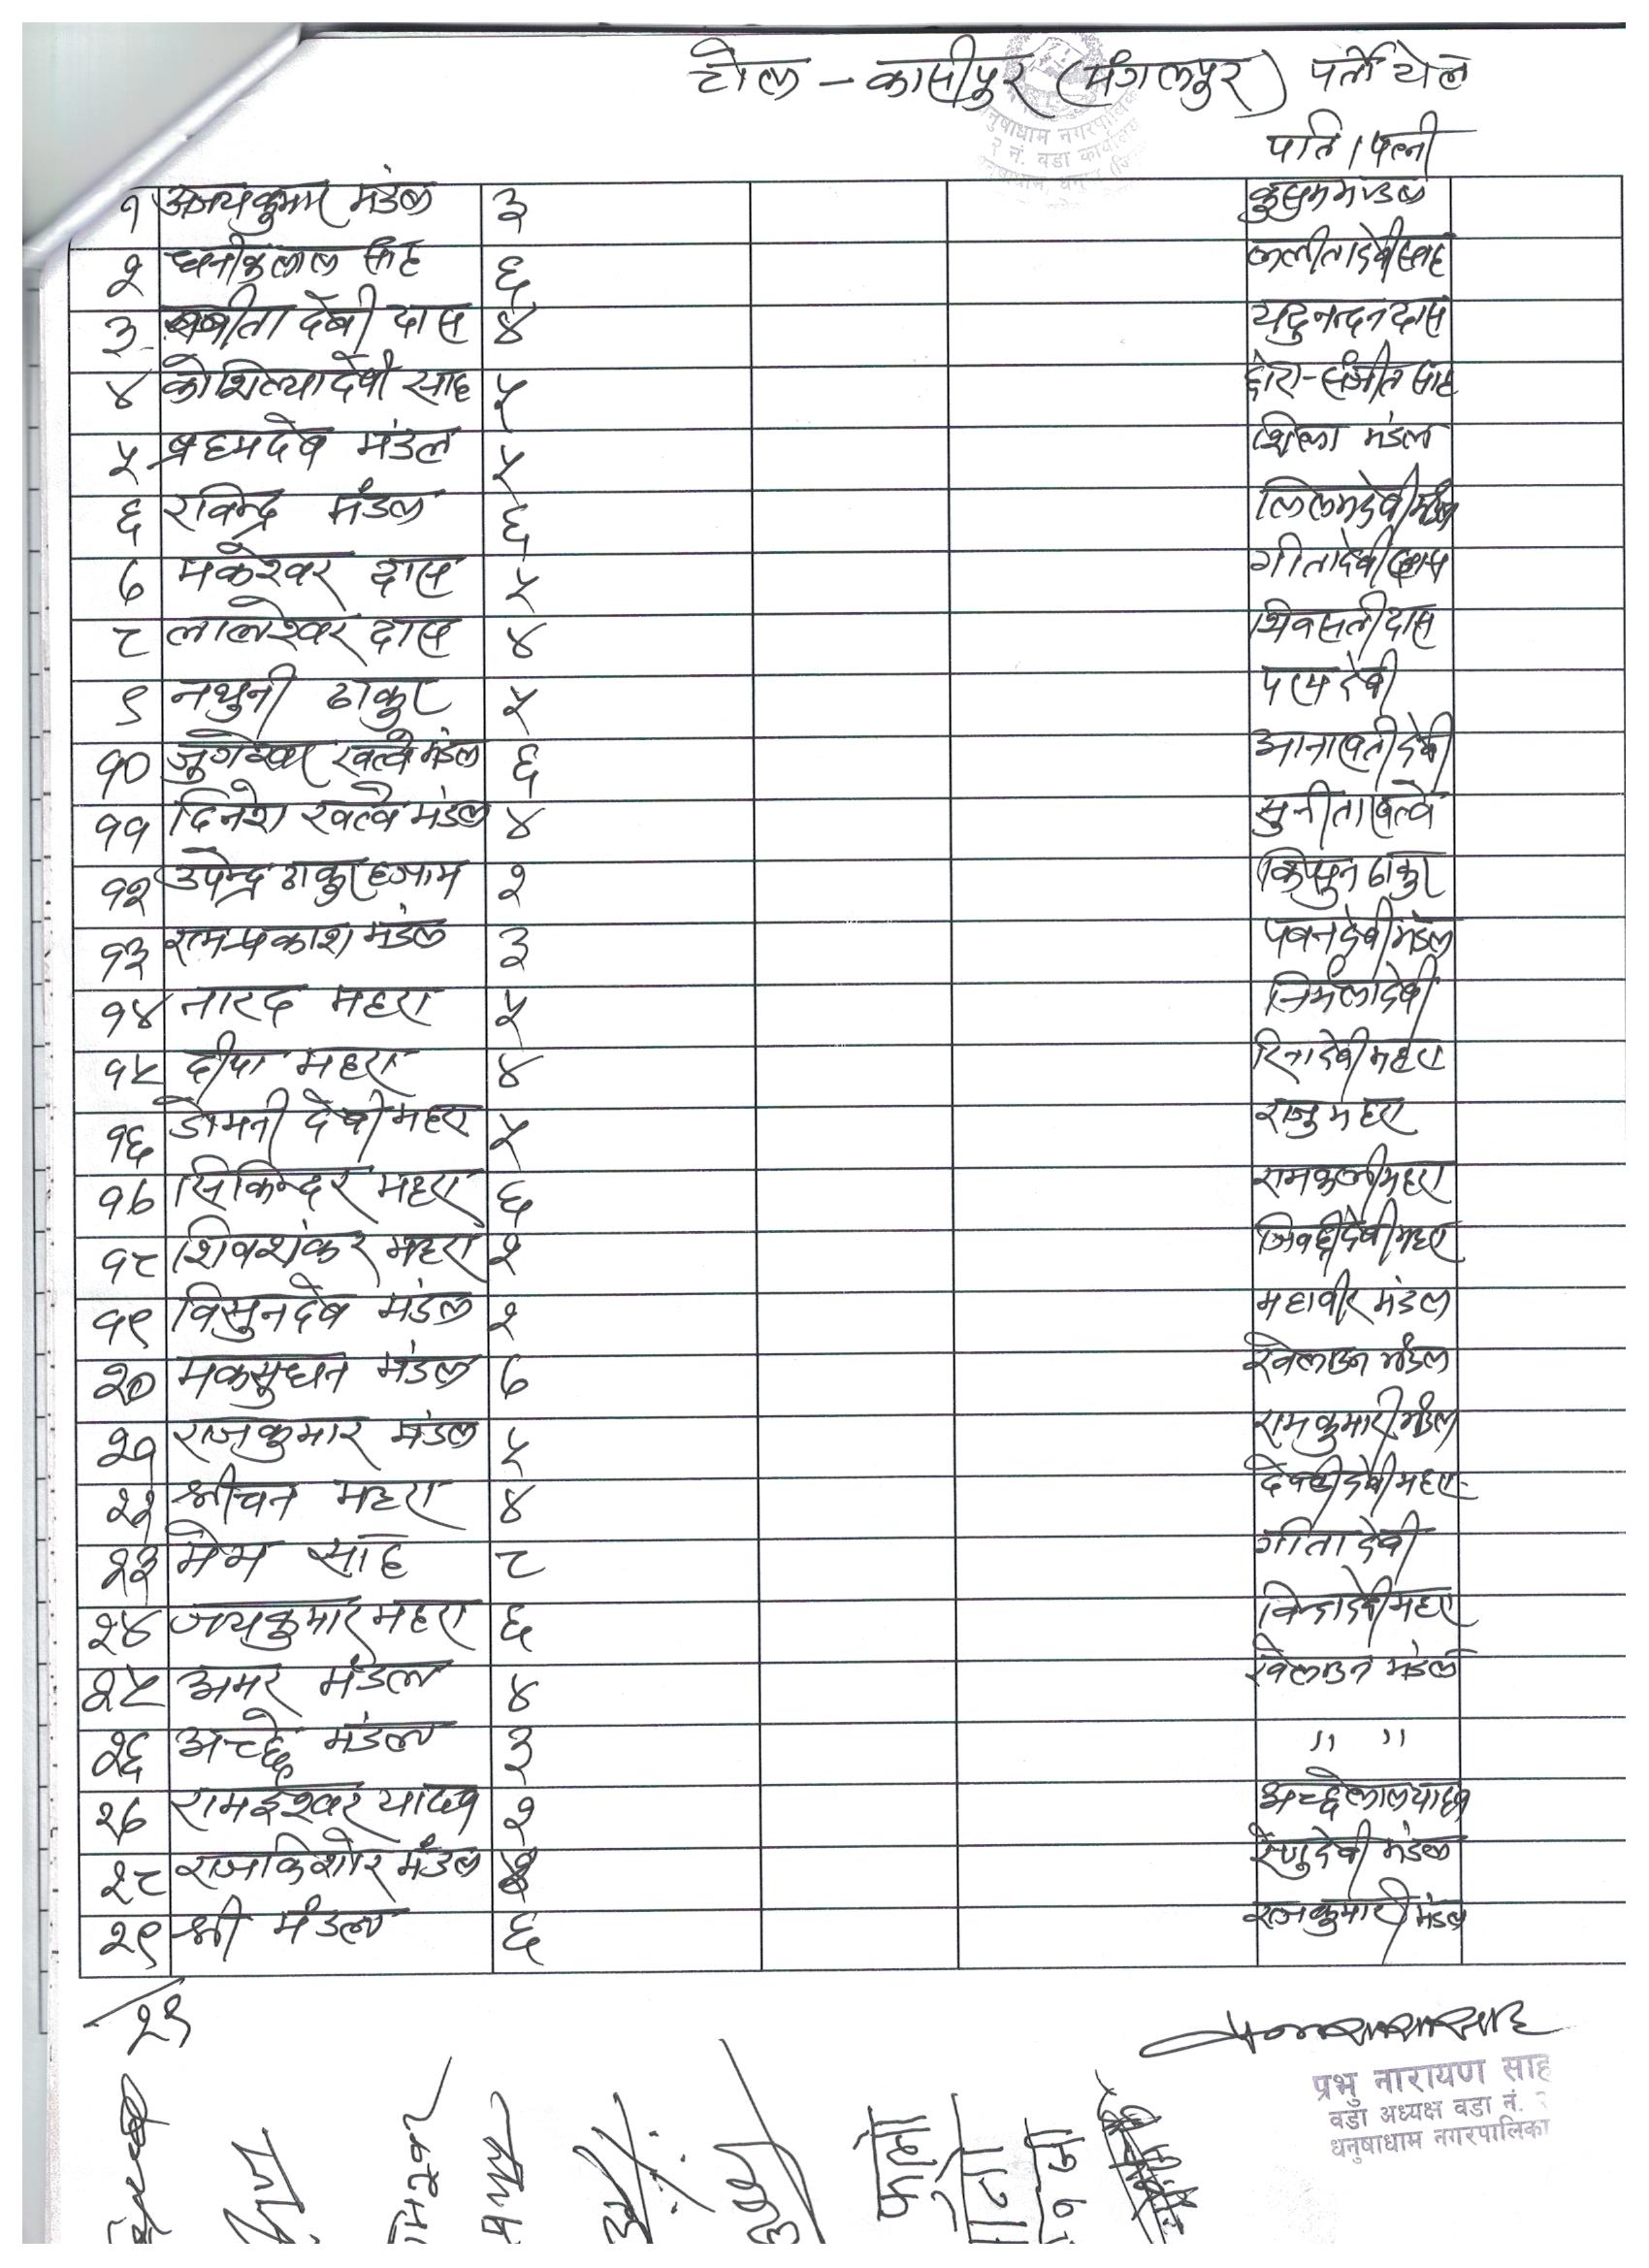 टोल - कासीपुर (मंगलपुर) पर्ती येल
पति । पत्नी
धनुषाधाम नगरपालिका
२ नं. वडा कार्यालय
१ अजयकुमार मंडल ३ कुसुम मण्डल
२ धनीकलाल साह ६ ललीतादेवी साह
३ बबीता देबी दास ४ यदुनन्दन दास
४ कोशिल्या देवी साह ५ छोरा-संजीत साह
५ ब्रहमदेब मंडल ५ शिला मंडल
६ रविन्द्र मंडल ६ लिलमदेवी मंडल
७ मकेश्वर दास ५ गीतादेवी दास
८ लालेश्वर दास ४ शिवसती दास
९ नथुनी ठाकुर ५ पलम देवी
१० जुगेश्वर खत्वे मंडल ६ आनावती देवी
११ दिनेश खत्वे मंडल ४ सुनीता खत्वे
१२ उपेन्द्र ठाकुर हजाम २ किसुन ठाकुर
१३ रामप्रकाश मंडल ३ पबनदेबी मंडल
१४ नारद महरा ५ निर्मलादेबी
१५ दीपा महरा ४ रिनादेबी महरा
१६ डोमनी देबी महरा ५ राजु महरा
१७ सिकिन्दर महरा ६ रामकली महरा
१८ शिवशंकर महरा २ देबी महरा
१९ विसुनदेब मंडल २ महावीर मंडल
२० मकसुधन मंडल ७ खेलाउन मंडल
२१ राजकुमार मंडल ५ रामकुमारी मंडल
२२ श्रीचन महरा ४ देवकी देबी महरा
२३ प्रेम साह ८ गीता देबी
२४ जयकुमार महरा ६ विन्दादेबी महरा
२५ अमर मंडल ४ खेलाउन मंडल
२६ अच्छे मंडल ३ " "
२७ रामईश्वर यादव २ अच्छेलाल यादव
२८ राजकिशोर मंडल रेणुदेबी मंडल
२९ श्री मंडल ६ राजकुमारी मंडल
२९
प्रभु नारायण साह
वडा अध्यक्ष वडा नं. २
धनुषाधाम नगरपालिका